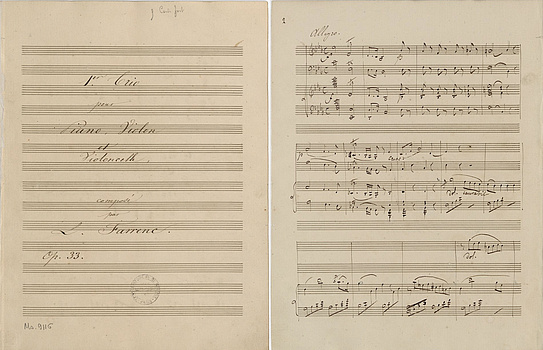 1er Trio
pour
Piano, Violon
et
Violoncelle.
composé
par
L. Farrenc.
Op. 33.
Ma. 9115
2
Allegro.